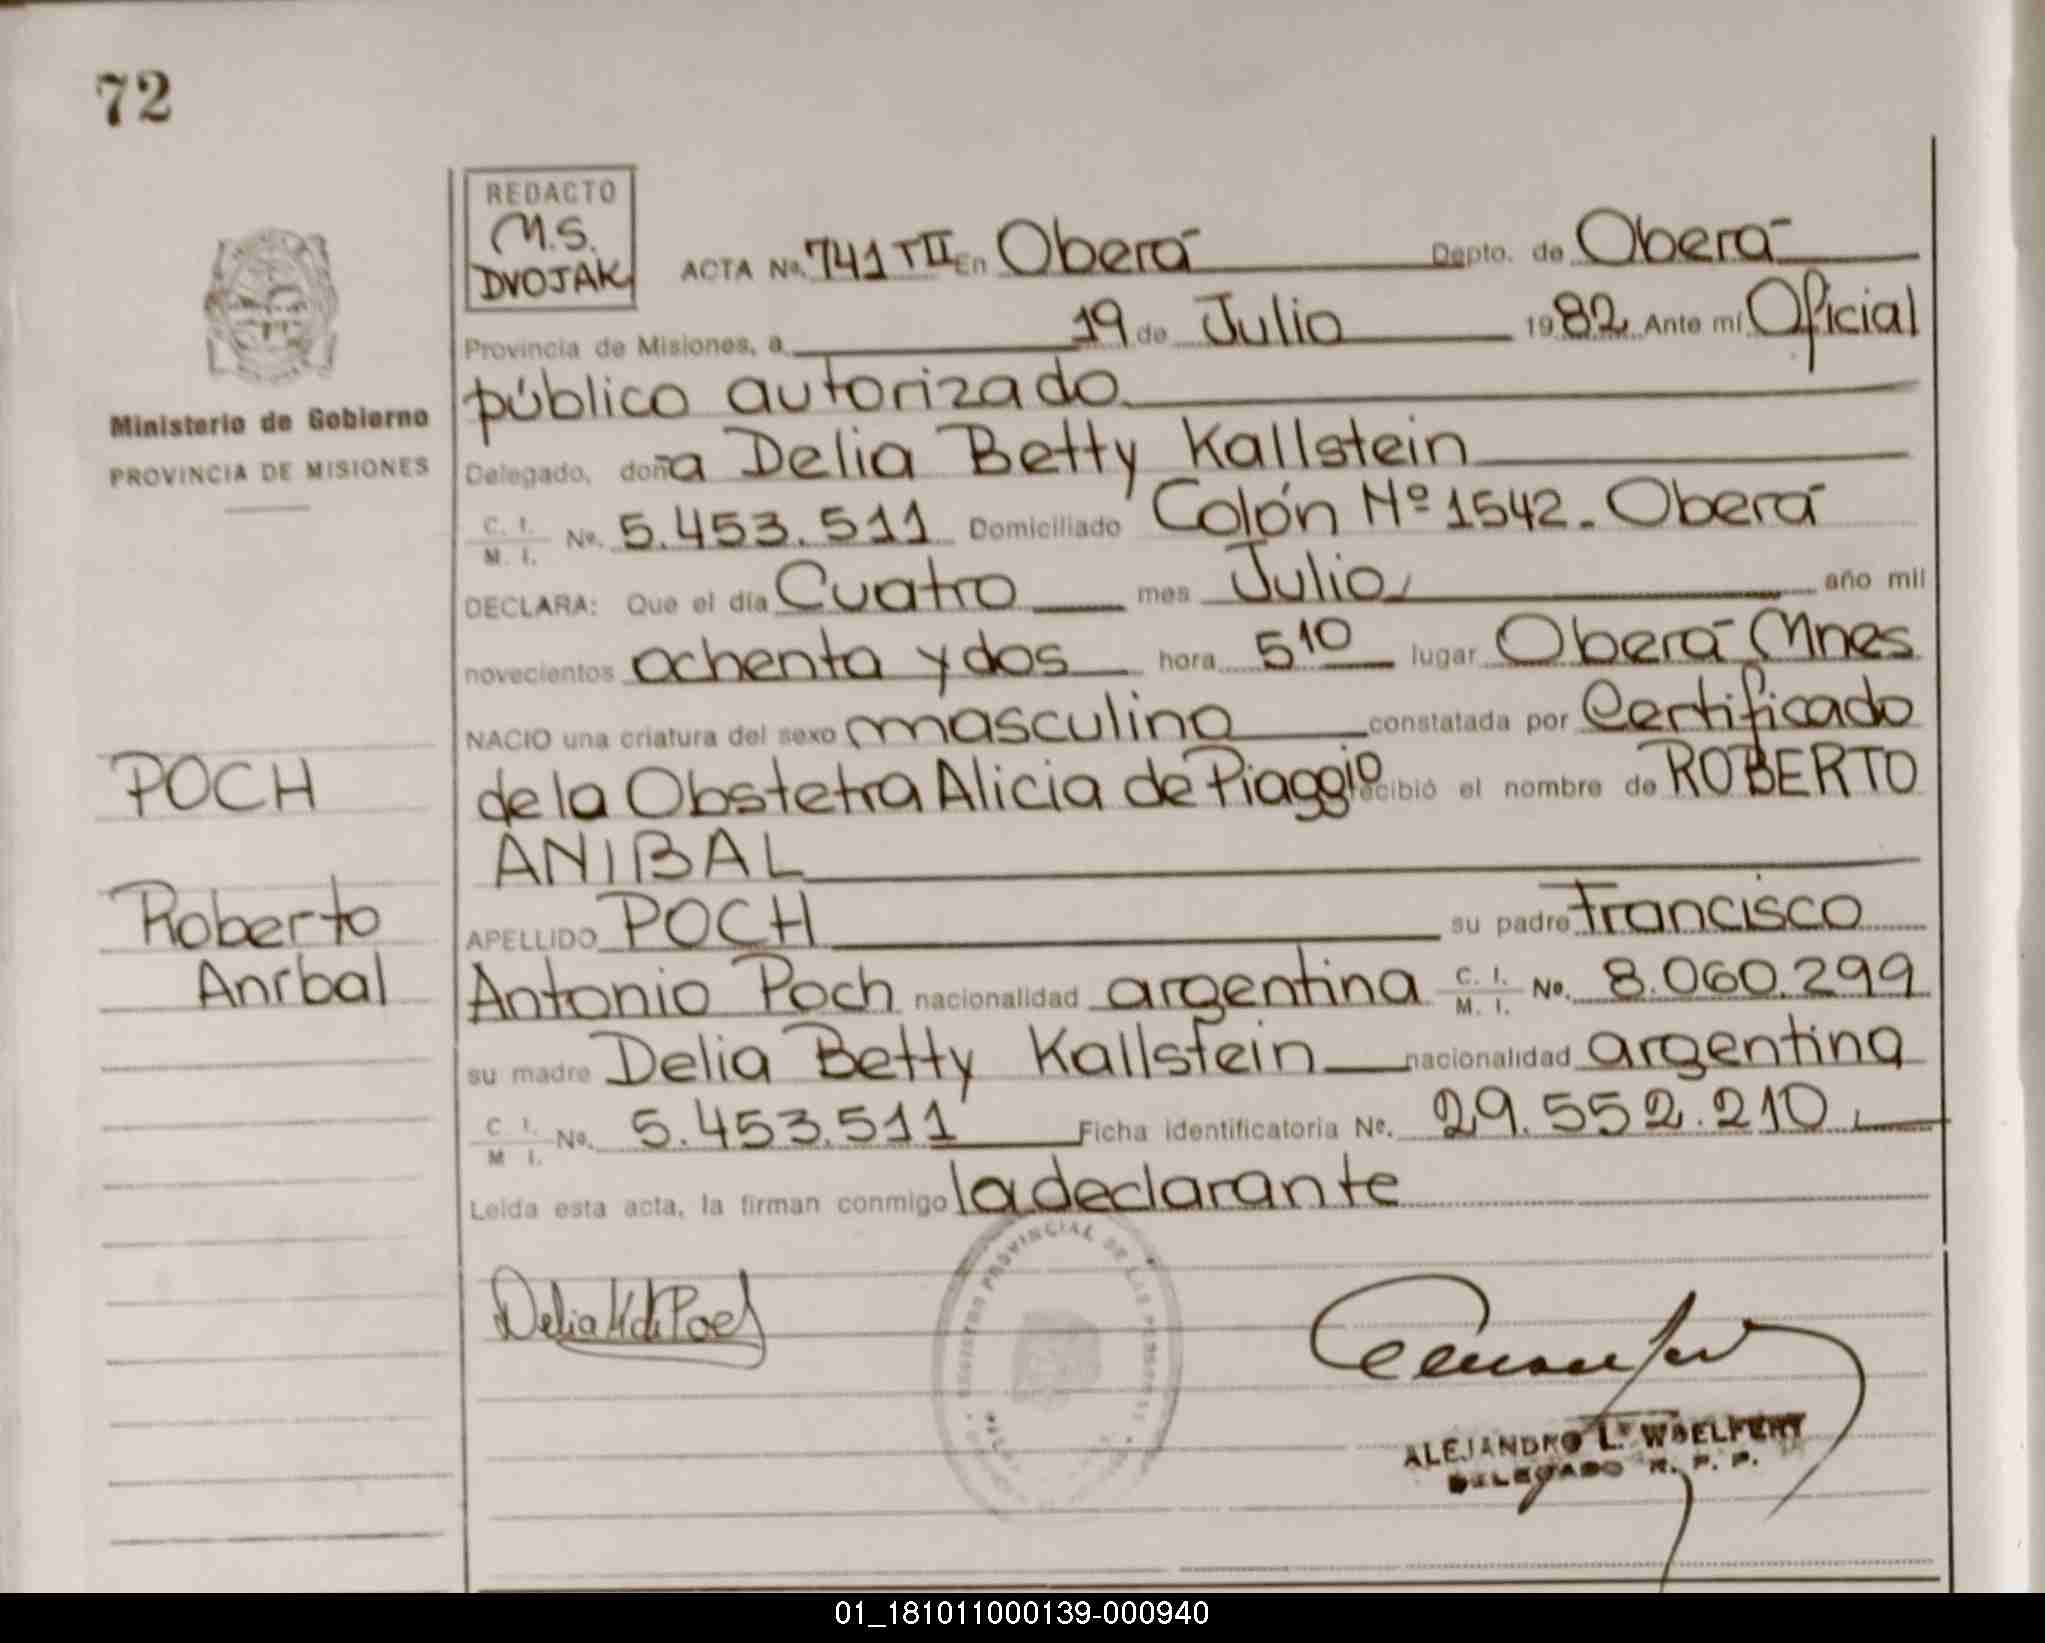 72
REDACTO
M.S.
DVOJAK
ACTA No. 741 TII En Oberá Depto. de Oberá
Provincia de Misiones, a 19 de Julio 1982 Ante mí Oficial
público autorizado
Ministerio de Gobierno
PROVINCIA DE MISIONES
Delegado, doña Delia Betty Kallstein
C. I. M. I. No. 5.453.511 Domiciliado Colón Nº 1542. Oberá
DECLARA: Que el día Cuatro mes Julio, año mil
novecientos ochenta y dos hora 5 10 lugar Oberá Mnes
NACIO una criatura del sexo masculino constatada por Certificado
de la Obstetra Alicia de Piaggio recibió el nombre de ROBERTO
ANIBAL
POCH
Roberto
Aníbal
APELLIDO POCH su padre Francisco
Antonio Poch nacionalidad argentina C. I. M. I. No. 8.060.299
su madre Delia Betty Kallstein nacionalidad argentina
C I. M I. No. 5.453.511 Ficha identificatoria No. 29.552.210
Leída esta acta, la firman conmigo la declarante
REGISTRO PROVINCIAL DE LAS PERSONAS
Delia K de Poch
ALEJANDRO L. WOELFERT
DELEGADO R. P. P.
01_181011000139-000940